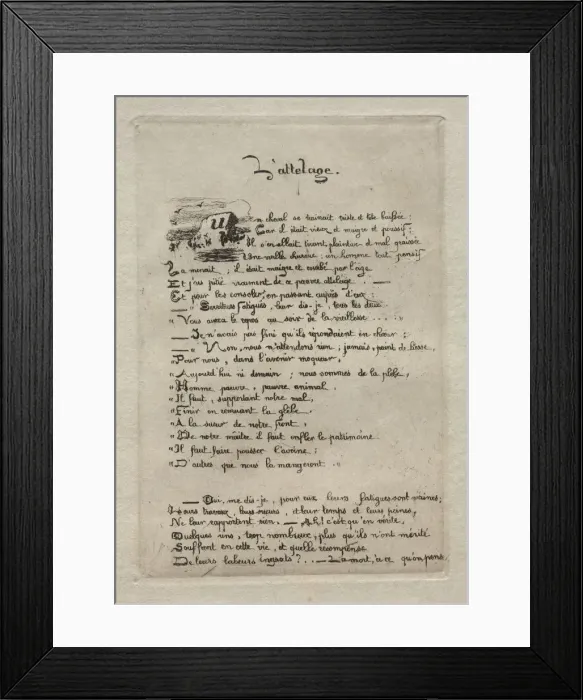 L'attelage.
Un cheval se trainait triste et tête baissée :
Car il était vieux et maigre et poussif :
Il s'en allait tirant, plaintive et mal graissée
Une vieille charrue : un homme tout pensif
La menait, ; il était maigre et courbé par l'âge
Et j'eus pitié vraiment de ce pauvre attelage . . —
Et pour les consoler, en passant auprès d'eux :
— " Serviteurs fatigués, leur dis-je, tous les deux
" Vous aurez le repos au soir de la vieillesse . . . : "
— Je n'avais pas fini qu'ils répondaient en chœur :
— " Non, nous n'attendons rien ; jamais, point de liesse,
" Pour nous, dans l'avenir moqueur,
" Aujourd'hui ni demain ; nous sommes de la plèbe,
" Homme pauvre, pauvre animal.
" Il faut, supportant notre mal,
" Finir en remuant la glèbe,
" A la sueur de notre front,
" De notre maître il faut enfler le patrimoine
" Il faut faire pousser l'avoine :
" D'autres que nous la mangeront. "
— Oui, me dis-je, pour eux leurs fatigues sont vaines;
Leurs travaux, leurs sueurs, et leur temps et leurs peines,
Ne leur rapportent rien. — Ah! c'est qu'en vérité,
Quelques uns, trop nombreux, plus qu'ils n'ont mérité
Souffrent en cette vie, et quelle récompense
De leurs labeurs ingrats ? . . — La mort, à ce qu'on pense.